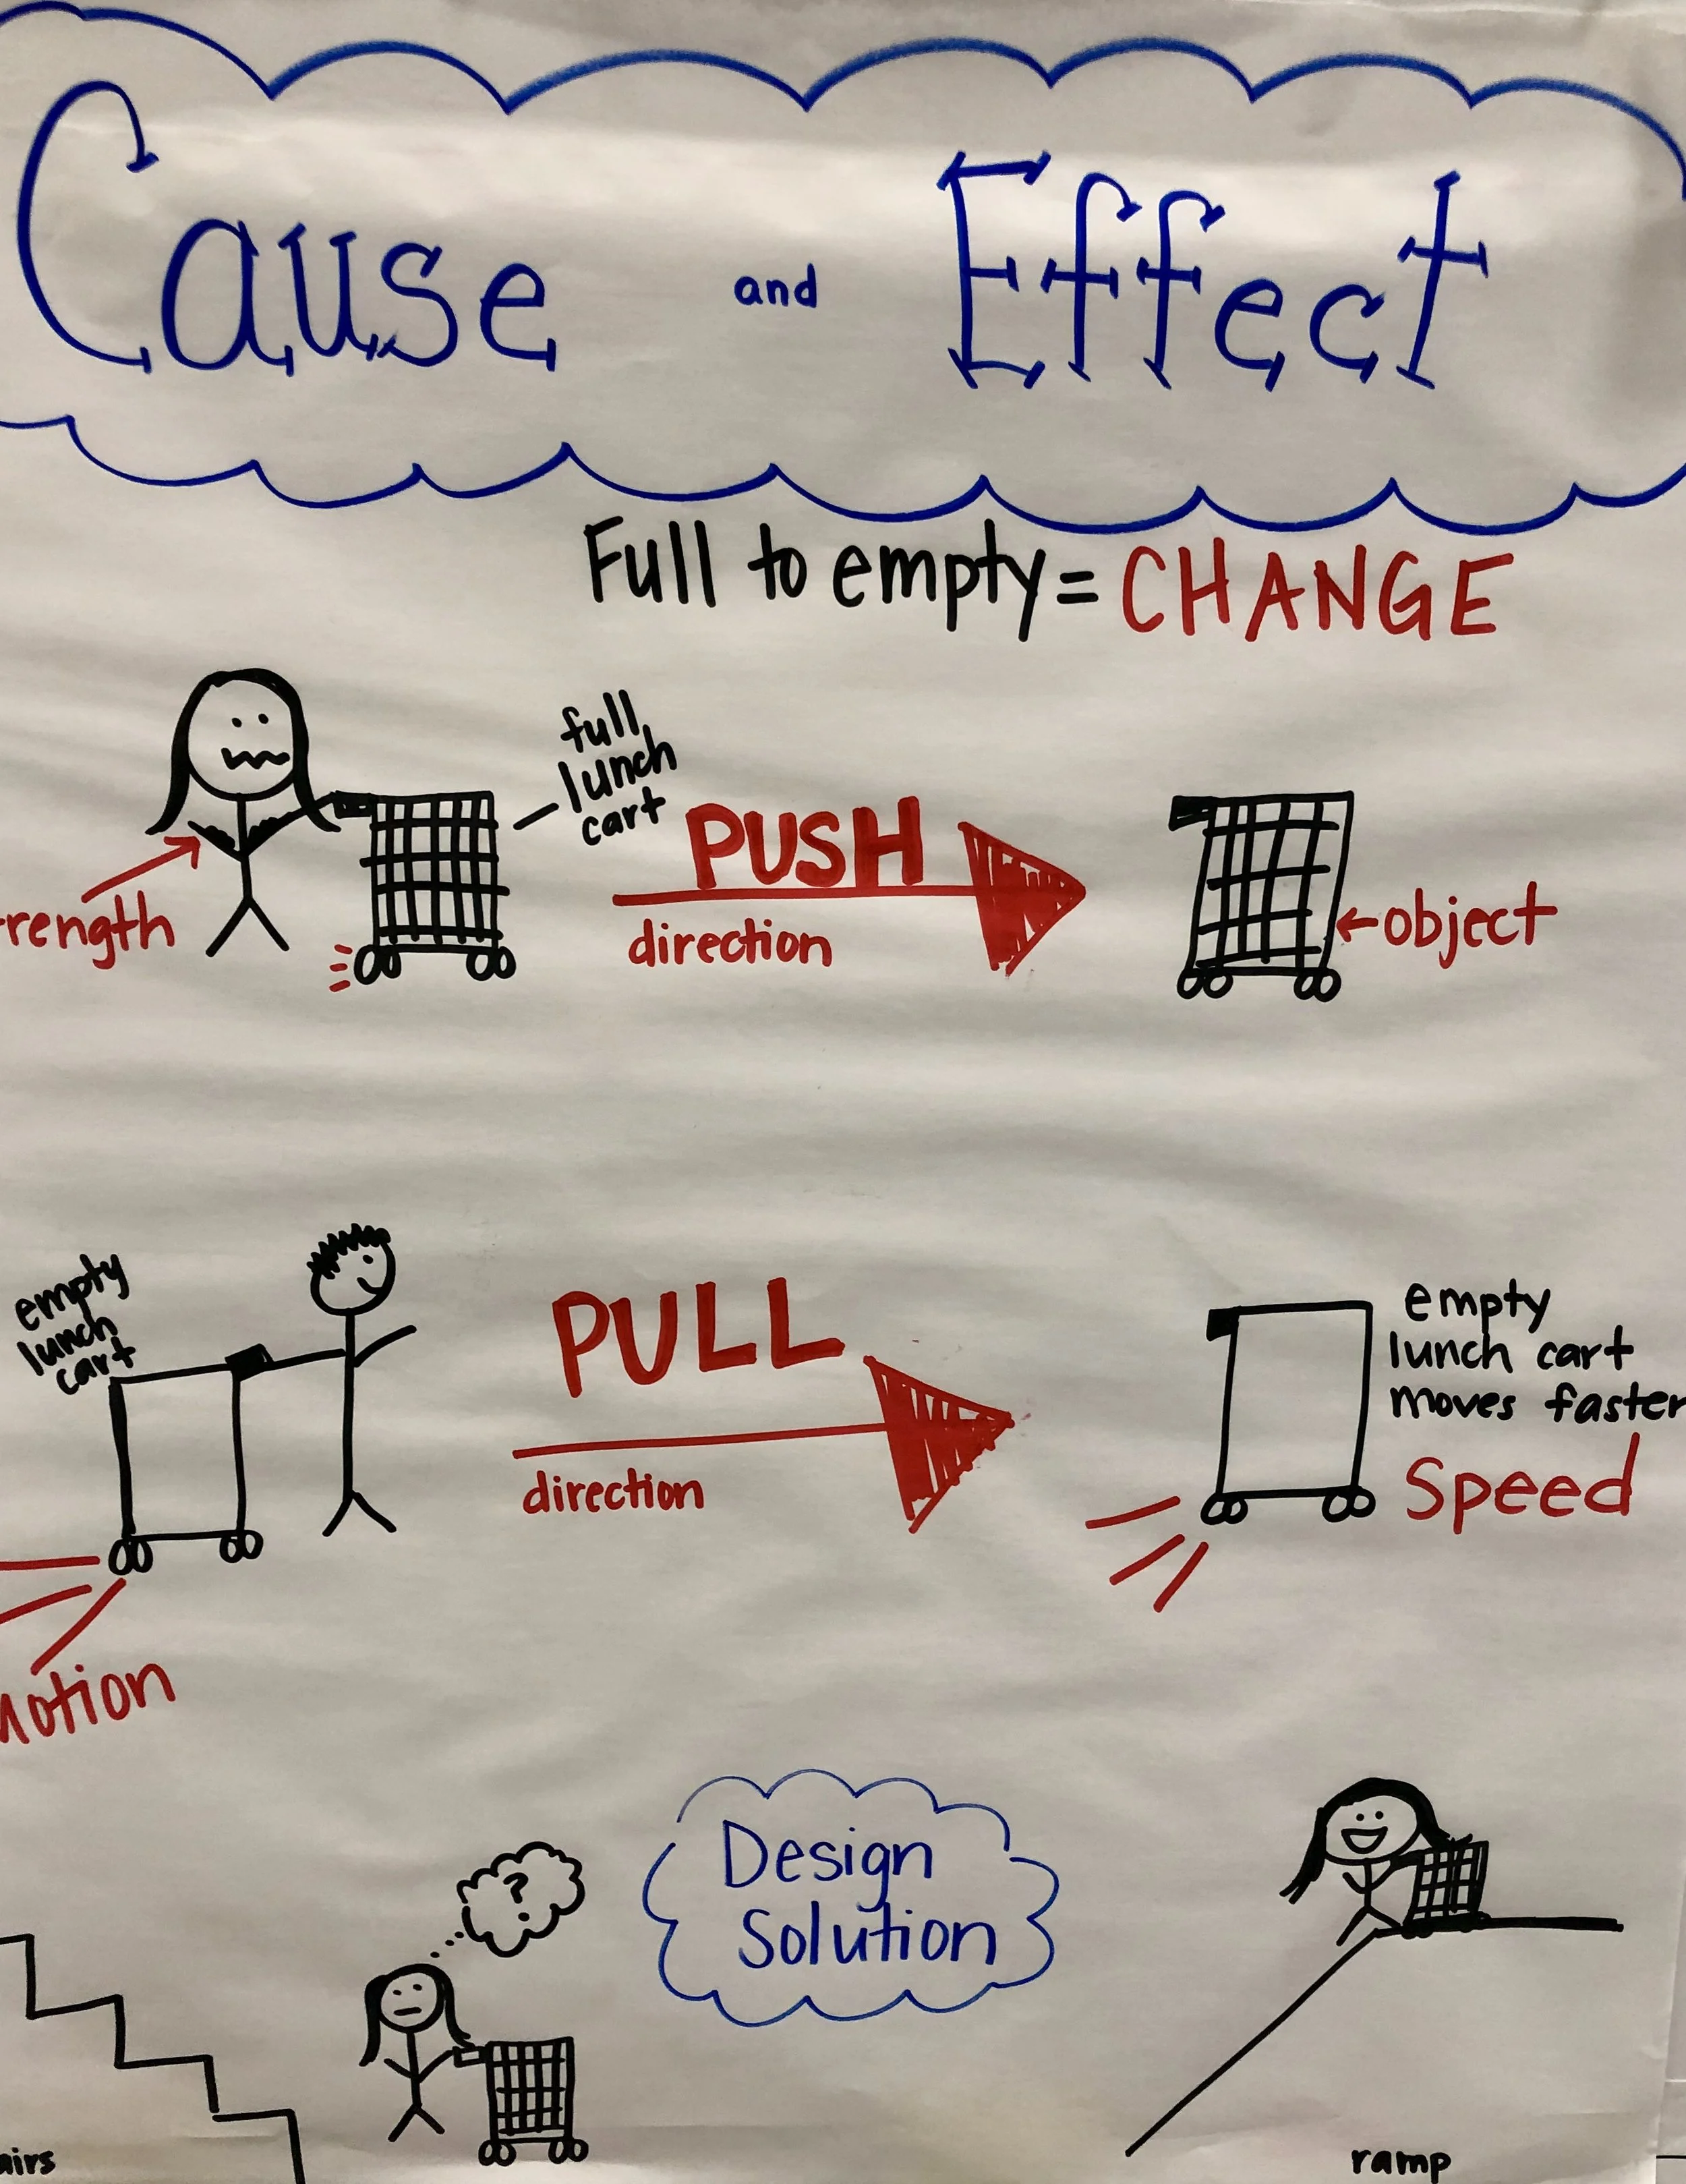 Cause and Effect
Full to empty = CHANGE
full
lunch
cart
PUSH
direction
rength
←object
empty
lunch
cart
PULL
direction
empty
lunch cart
moves faster
Speed
Motion
?
Design
Solution
airs
ramp